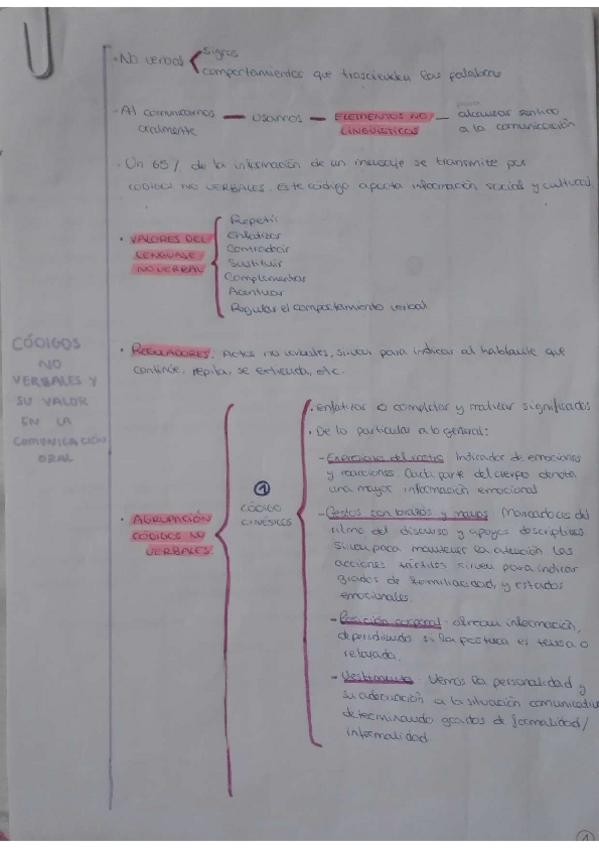 · No verbal
signos
comportamientos que trascienden las palabras
· Al comunicarnos oralmente — usamos — ELEMENTOS NO LINGÜÍSTICOS — para alcanzar sentido a la comunicación
· Un 65% de la información de un mensaje se transmite por
CÓDIGOS NO VERBALES. Este código aporta información social y cultural
· VALORES DEL
LENGUAJE
NO VERBAL
Repetir
Enfatizar
Contradecir
Sustituir
Complementar
Acentuar
Regular el comportamiento verbal
· REGULADORES. Actos no verbales, sirven para indicar al hablante que
continúe, repita, se extienda, etc.
CÓDIGOS
NO
VERBALES Y
SU VALOR
EN LA
COMUNICACIÓN
ORAL
· AGRUPACIÓN
CÓDIGOS NO
VERBALES
1
CÓDIGO
CINÉSICOS
· enfatizar o completar y matizar significados
· De lo particular a lo general:
- Expresión del rostro. Indicador de emociones
y reacciones. Cada parte del cuerpo denota
una mayor información emocional
- Gestos con brazos y manos. Marcadores del
ritmo del discurso y apoyos descriptivos
Sirven para mantener la atención. Las
acciones táctiles sirven para indicar
grados de familiaridad, y estados
emocionales.
- Posición corporal. ofrecen información,
dependiendo si la postura es tensa o
relajada.
- Vestimenta. Vemos la personalidad y
su adecuación a la situación comunicativa
determinando grados de formalidad/
informalidad.
1